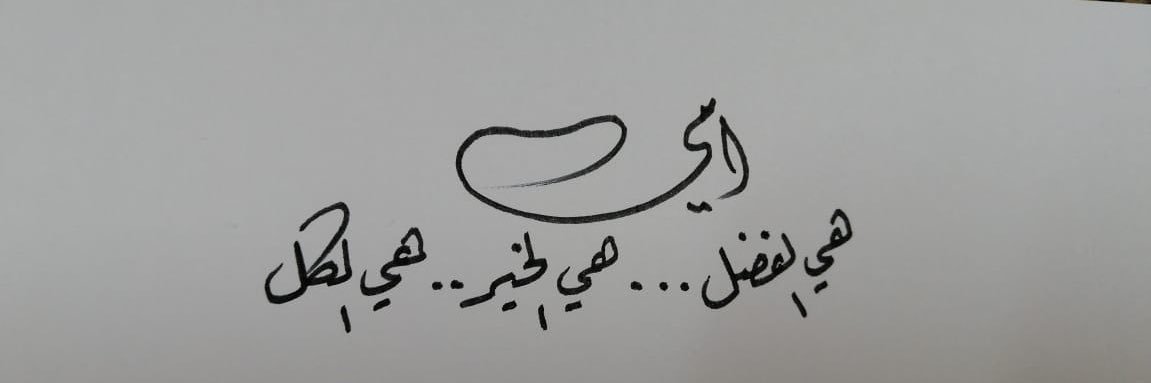 أمي
هي الفضل ... هي الخير .. هي الكل